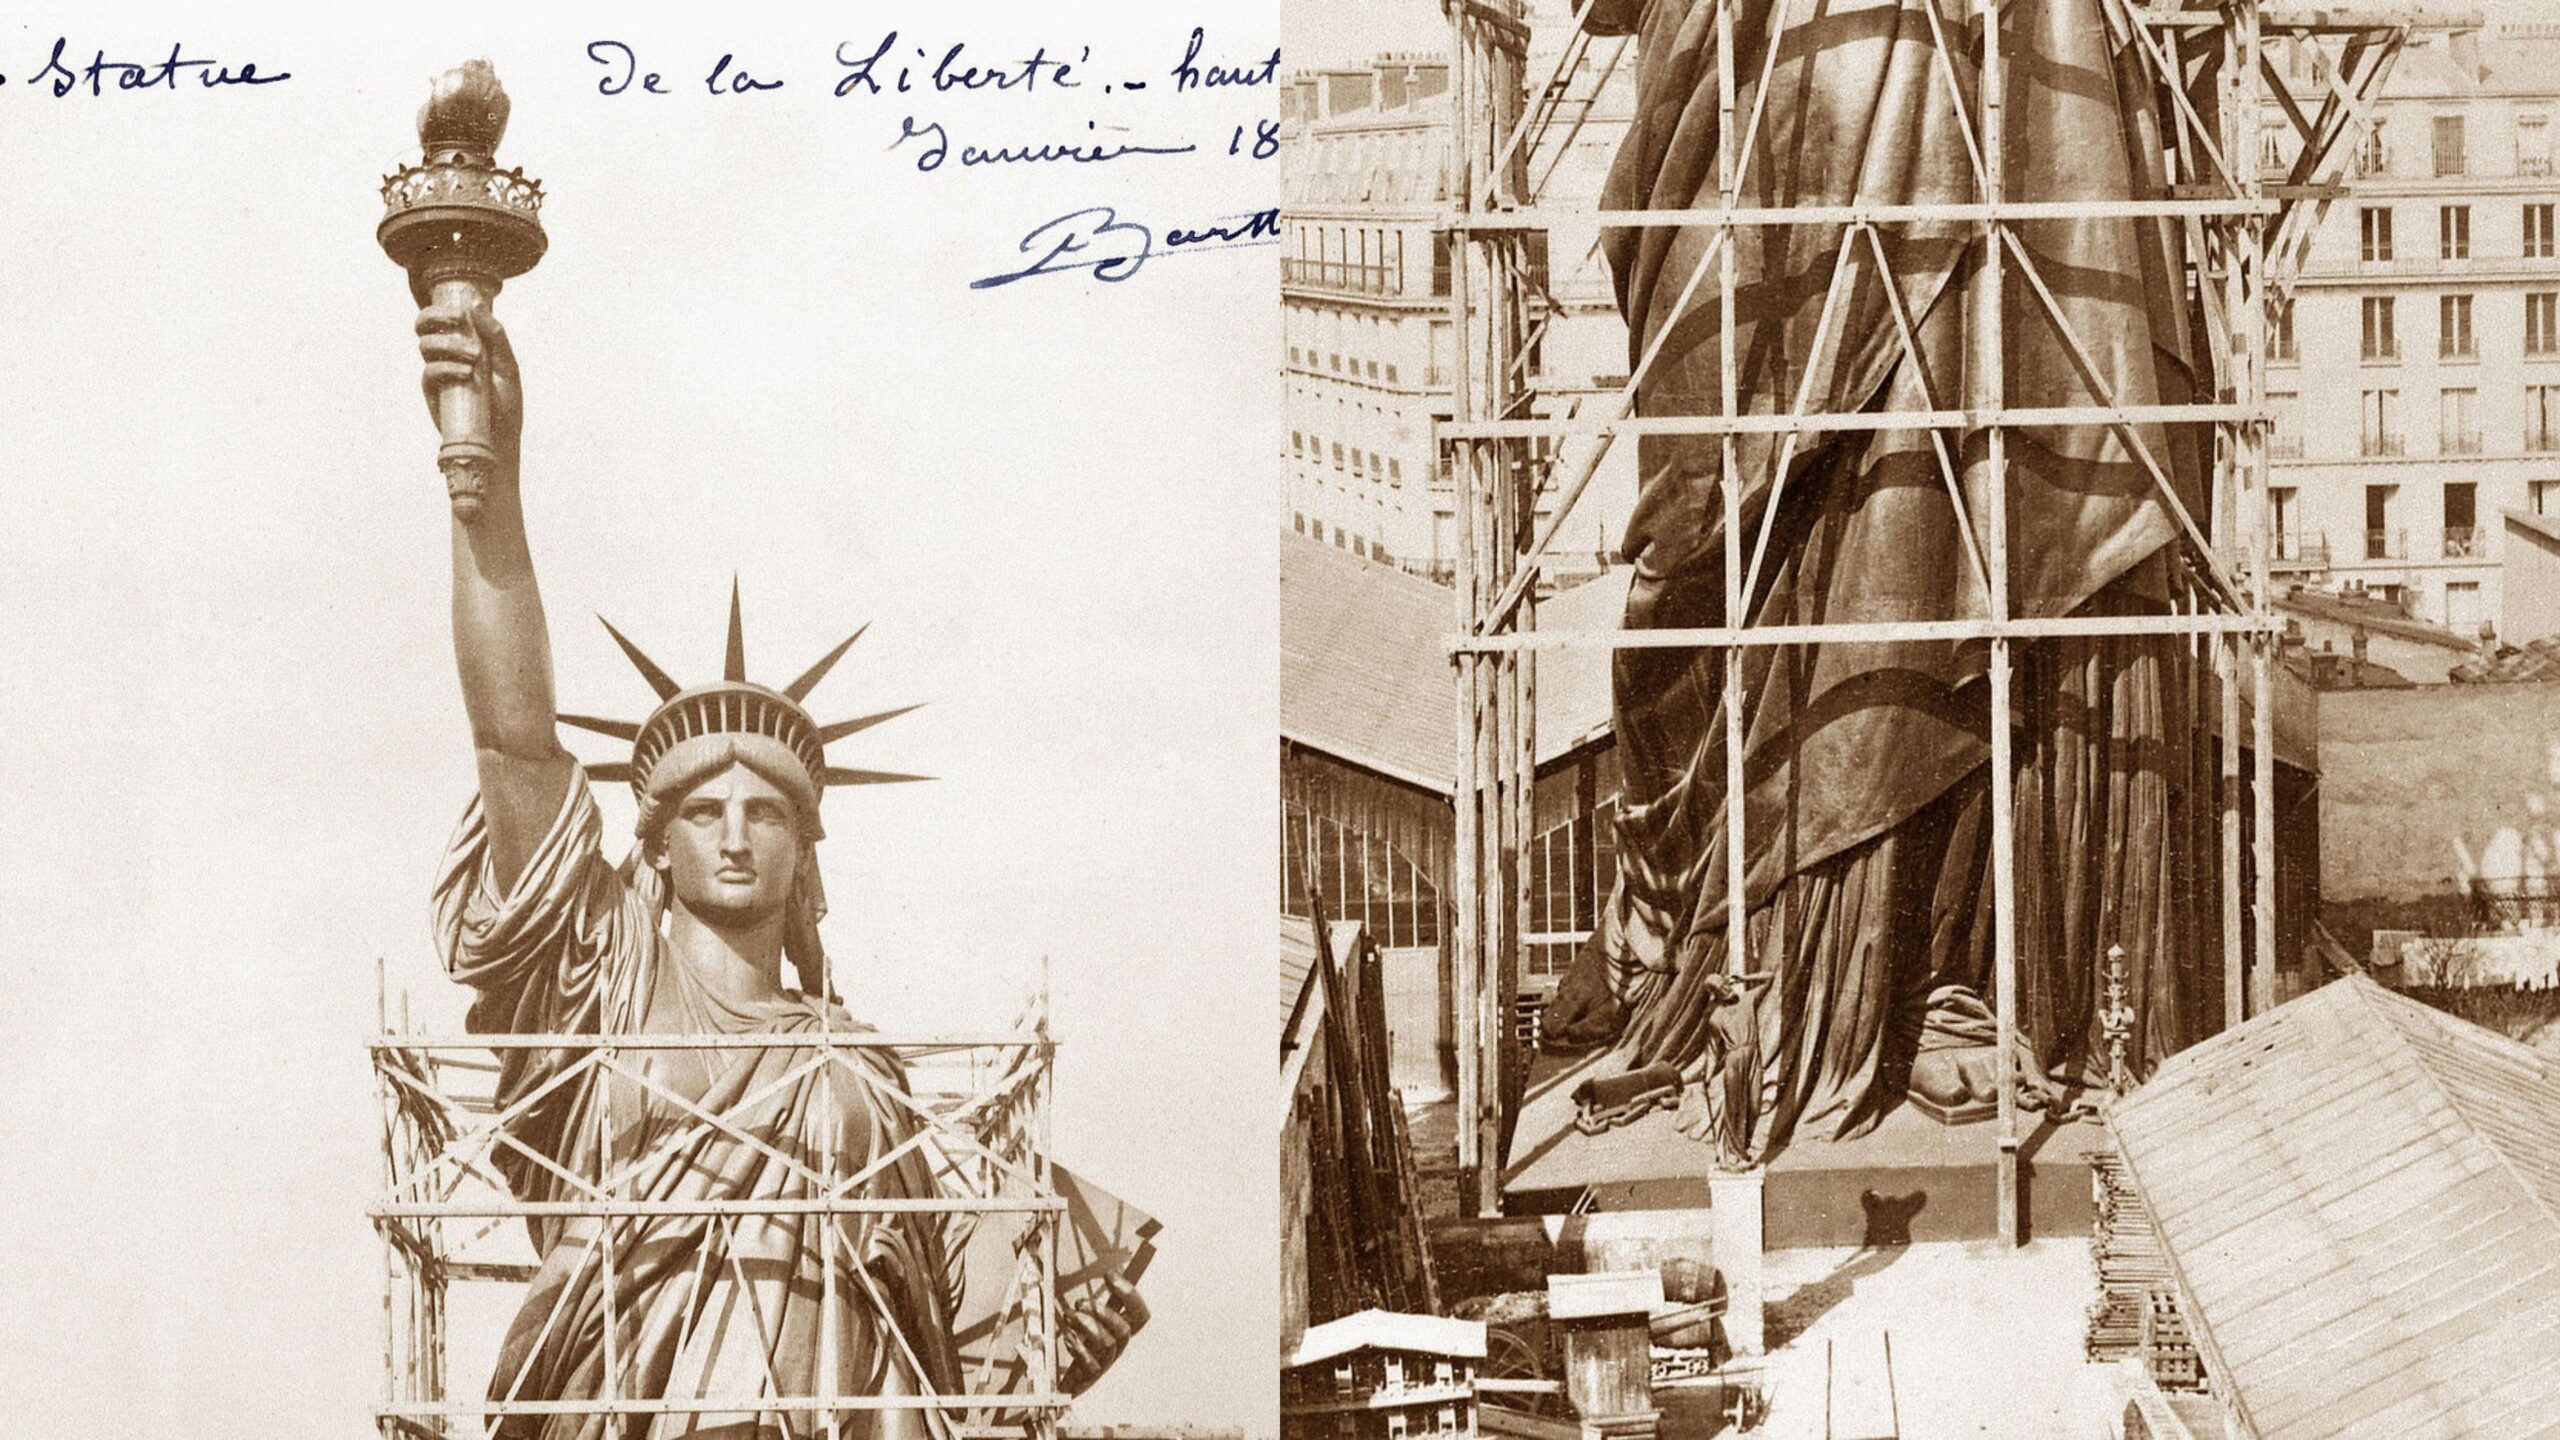 Statue De la Liberté.- haut
Janvier 18
Bartt